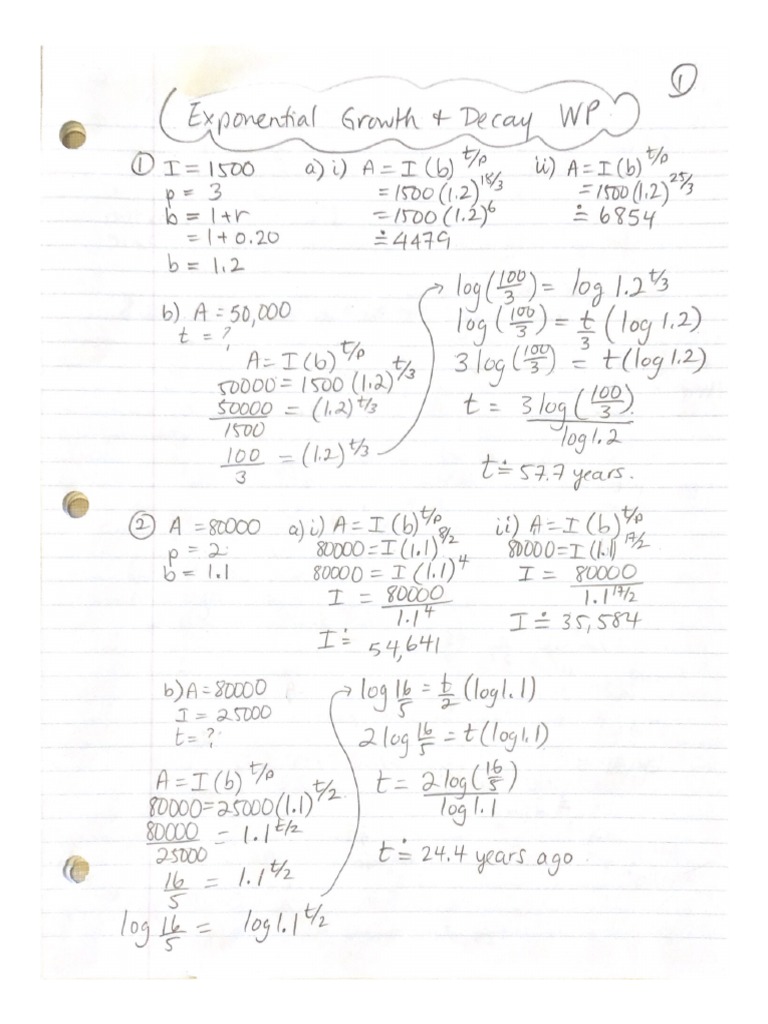 ①
Exponential Growth + Decay WP
① I = 1500
p = 3
b = 1+r
= 1+0.20
b = 1.2
a) i) A = I (b)^t/p
= 1500 (1.2)^18/3
= 1500 (1.2)^6
≐ 4479
ii) A = I (b)^t/p
= 1500 (1.2)^25/3
≐ 6854
b) A = 50,000
t = ?
A = I (b)^t/p
50000 = 1500 (1.2)^t/3
50000/1500 = (1.2)^t/3
100/3 = (1.2)^t/3
log(100/3) = log 1.2^t/3
log(100/3) = t/3 (log 1.2)
3 log(100/3) = t(log 1.2)
t = 3 log(100/3)/log 1.2
t ≐ 57.7 years.
② A = 80000
p = 2
b = 1.1
a) i) A = I (b)^t/p
80000 = I (1.1)^8/2
80000 = I (1.1)^4
I = 80000/1.1^4
I ≐ 54,641
ii) A = I (b)^t/p
80000 = I (1.1)^17/2
I = 80000/1.1^17/2
I ≐ 35,584
b) A = 80000
I = 25000
t = ?
A = I (b)^t/p
80000 = 25000 (1.1)^t/2
80000/25000 = 1.1^t/2
16/5 = 1.1^t/2
log 16/5 = log 1.1^t/2
log 16/5 = t/2 (log 1.1)
2 log 16/5 = t (log 1.1)
t = 2 log(16/5)/log 1.1
t ≐ 24.4 years ago.